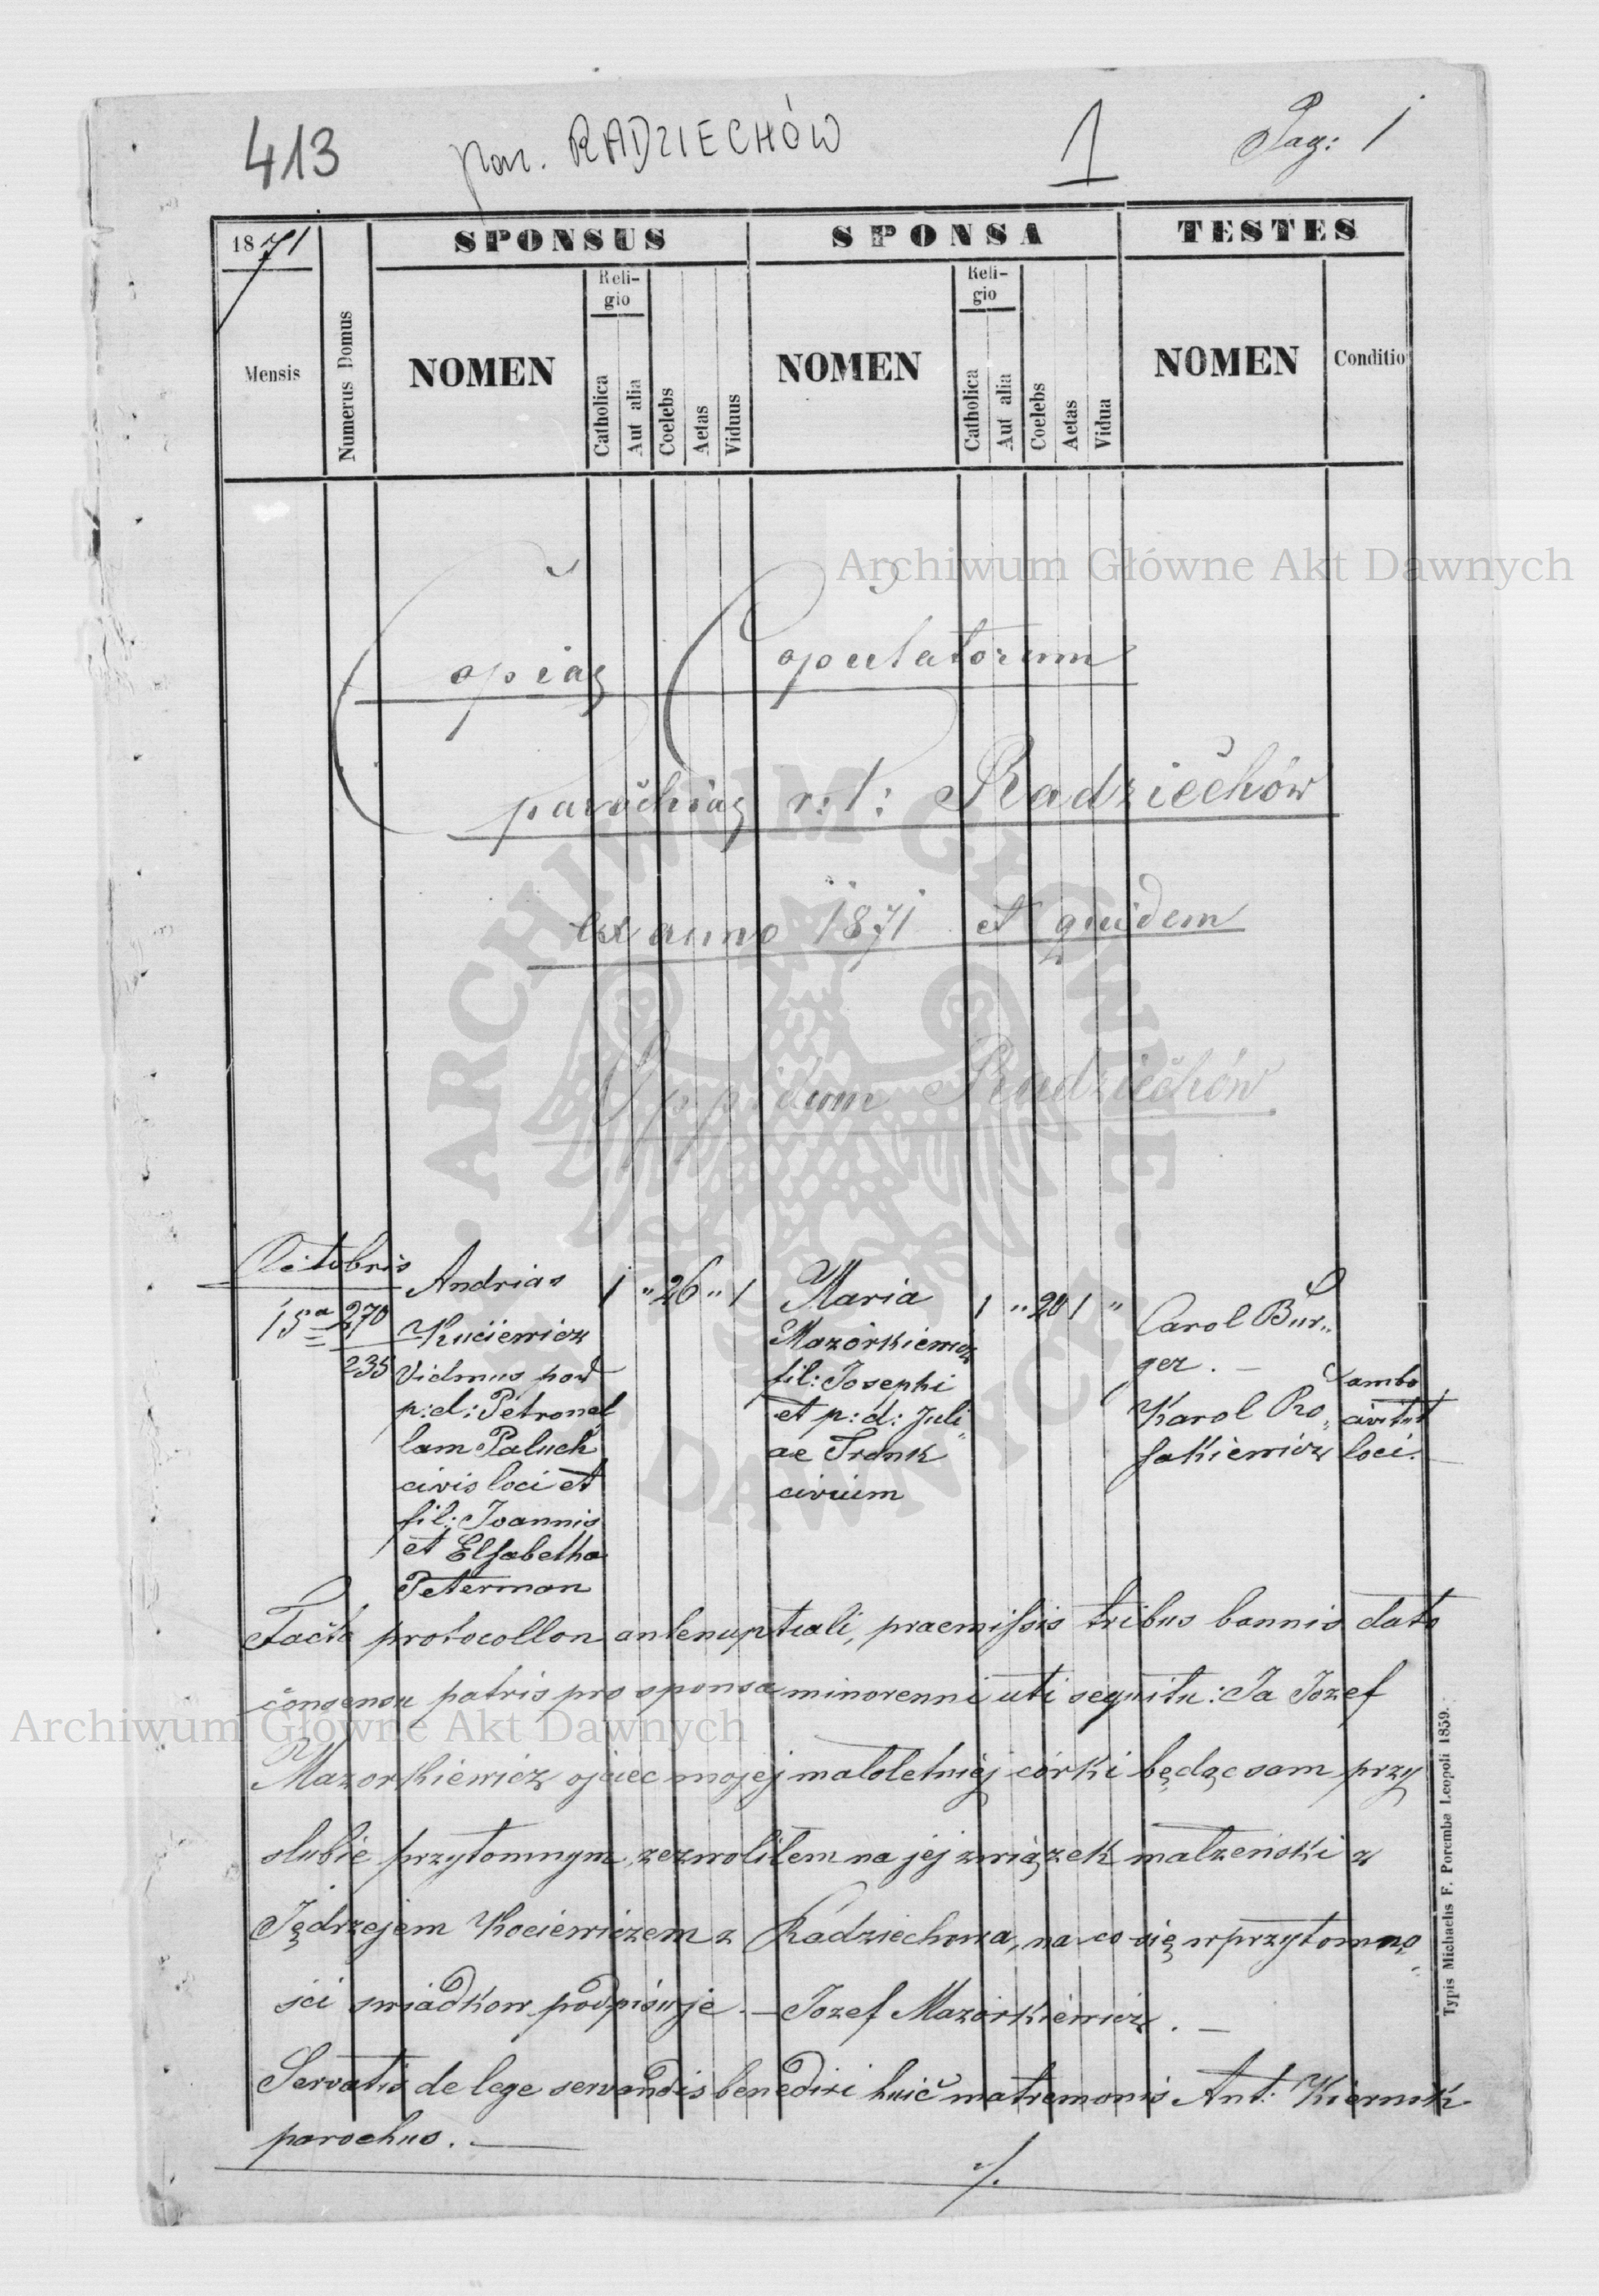 413 par. RADZIECHÓW 1 Pag: 1
1871 SPONSUS SPONSA TESTES
Mensis
Numerus Domus
NOMEN
Religio
Catholica
Aut alia
Coelebs
Aetas
Viduus
NOMEN
Religio
Catholica
Aut alia
Coelebs
Aetas
Vidua
NOMEN
Conditio
Archiwum Główne Akt Dawnych
Copiae Copulatorum
parochiae r: l: Radziechów
ex anno 1871 et quidem
Oppidum Radziechów
ARCHIWUM GŁÓWNE AKT DAWNYCH
Octobris
15a
270
235
Andrias
Kuciewicz
Vidmus post
p: d: Petronel
lam Paluch
civis loci et
fil: Joannis
et Elsabetha
Peterman
1 " 26 " 1
Maria
Mazorkiewicz
fil: Josephi
et p: d: Juli
ae Frenk
civium
1 " 20 1 "
Carol Bur„
ger. —
Karol Ro„
sakiewicz
ambo
loci.
Facto protocollon antenuptiali, praemissis tribus bannis dato
consensu patris pro sponsa minorenni uti sequitu: Ja Jozef
Archiwum Główne Akt Dawnych
Mazorkiewicz ojciec mojej maloletniej córki będąc sam przy
slubie przytomnym, zezwolilem na jej związek malzeński z
Jędrzejem Kociewiczem z Radziechowa, na co się w przytomno„
sci swiadkow podpisuje. — Jozef Mazorkiewicz. —
Servatis de lege servandis benedixi huic matremonio Ant: Kiernik
parochus. —
./.
Typis Michaelis F. Poremba Leopoli 1859.